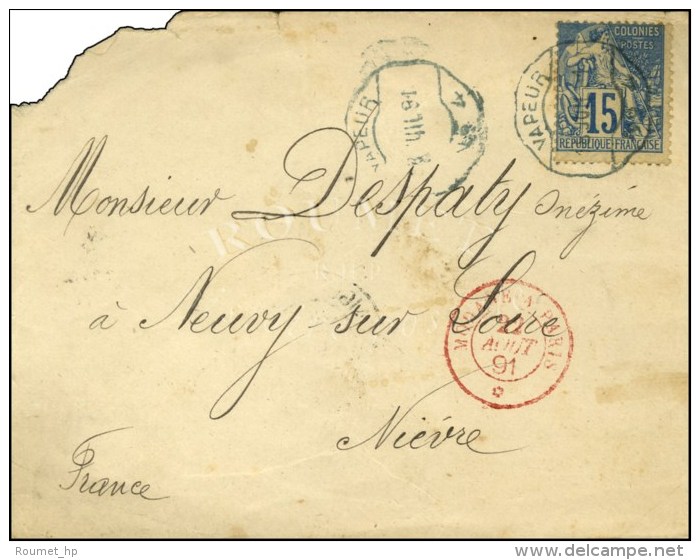 COLONIES
POSTES
15
REPUBLIQUE FRANÇAISE
VAPEUR
VAPEUR
JUIL 91
Monsieur Despaty Onézime
à Neuvy sur Loire
MODANE A PARIS
22
AOUT
91
Nièvre
France
ROUMET
Roumet_hp
© delcampe.net